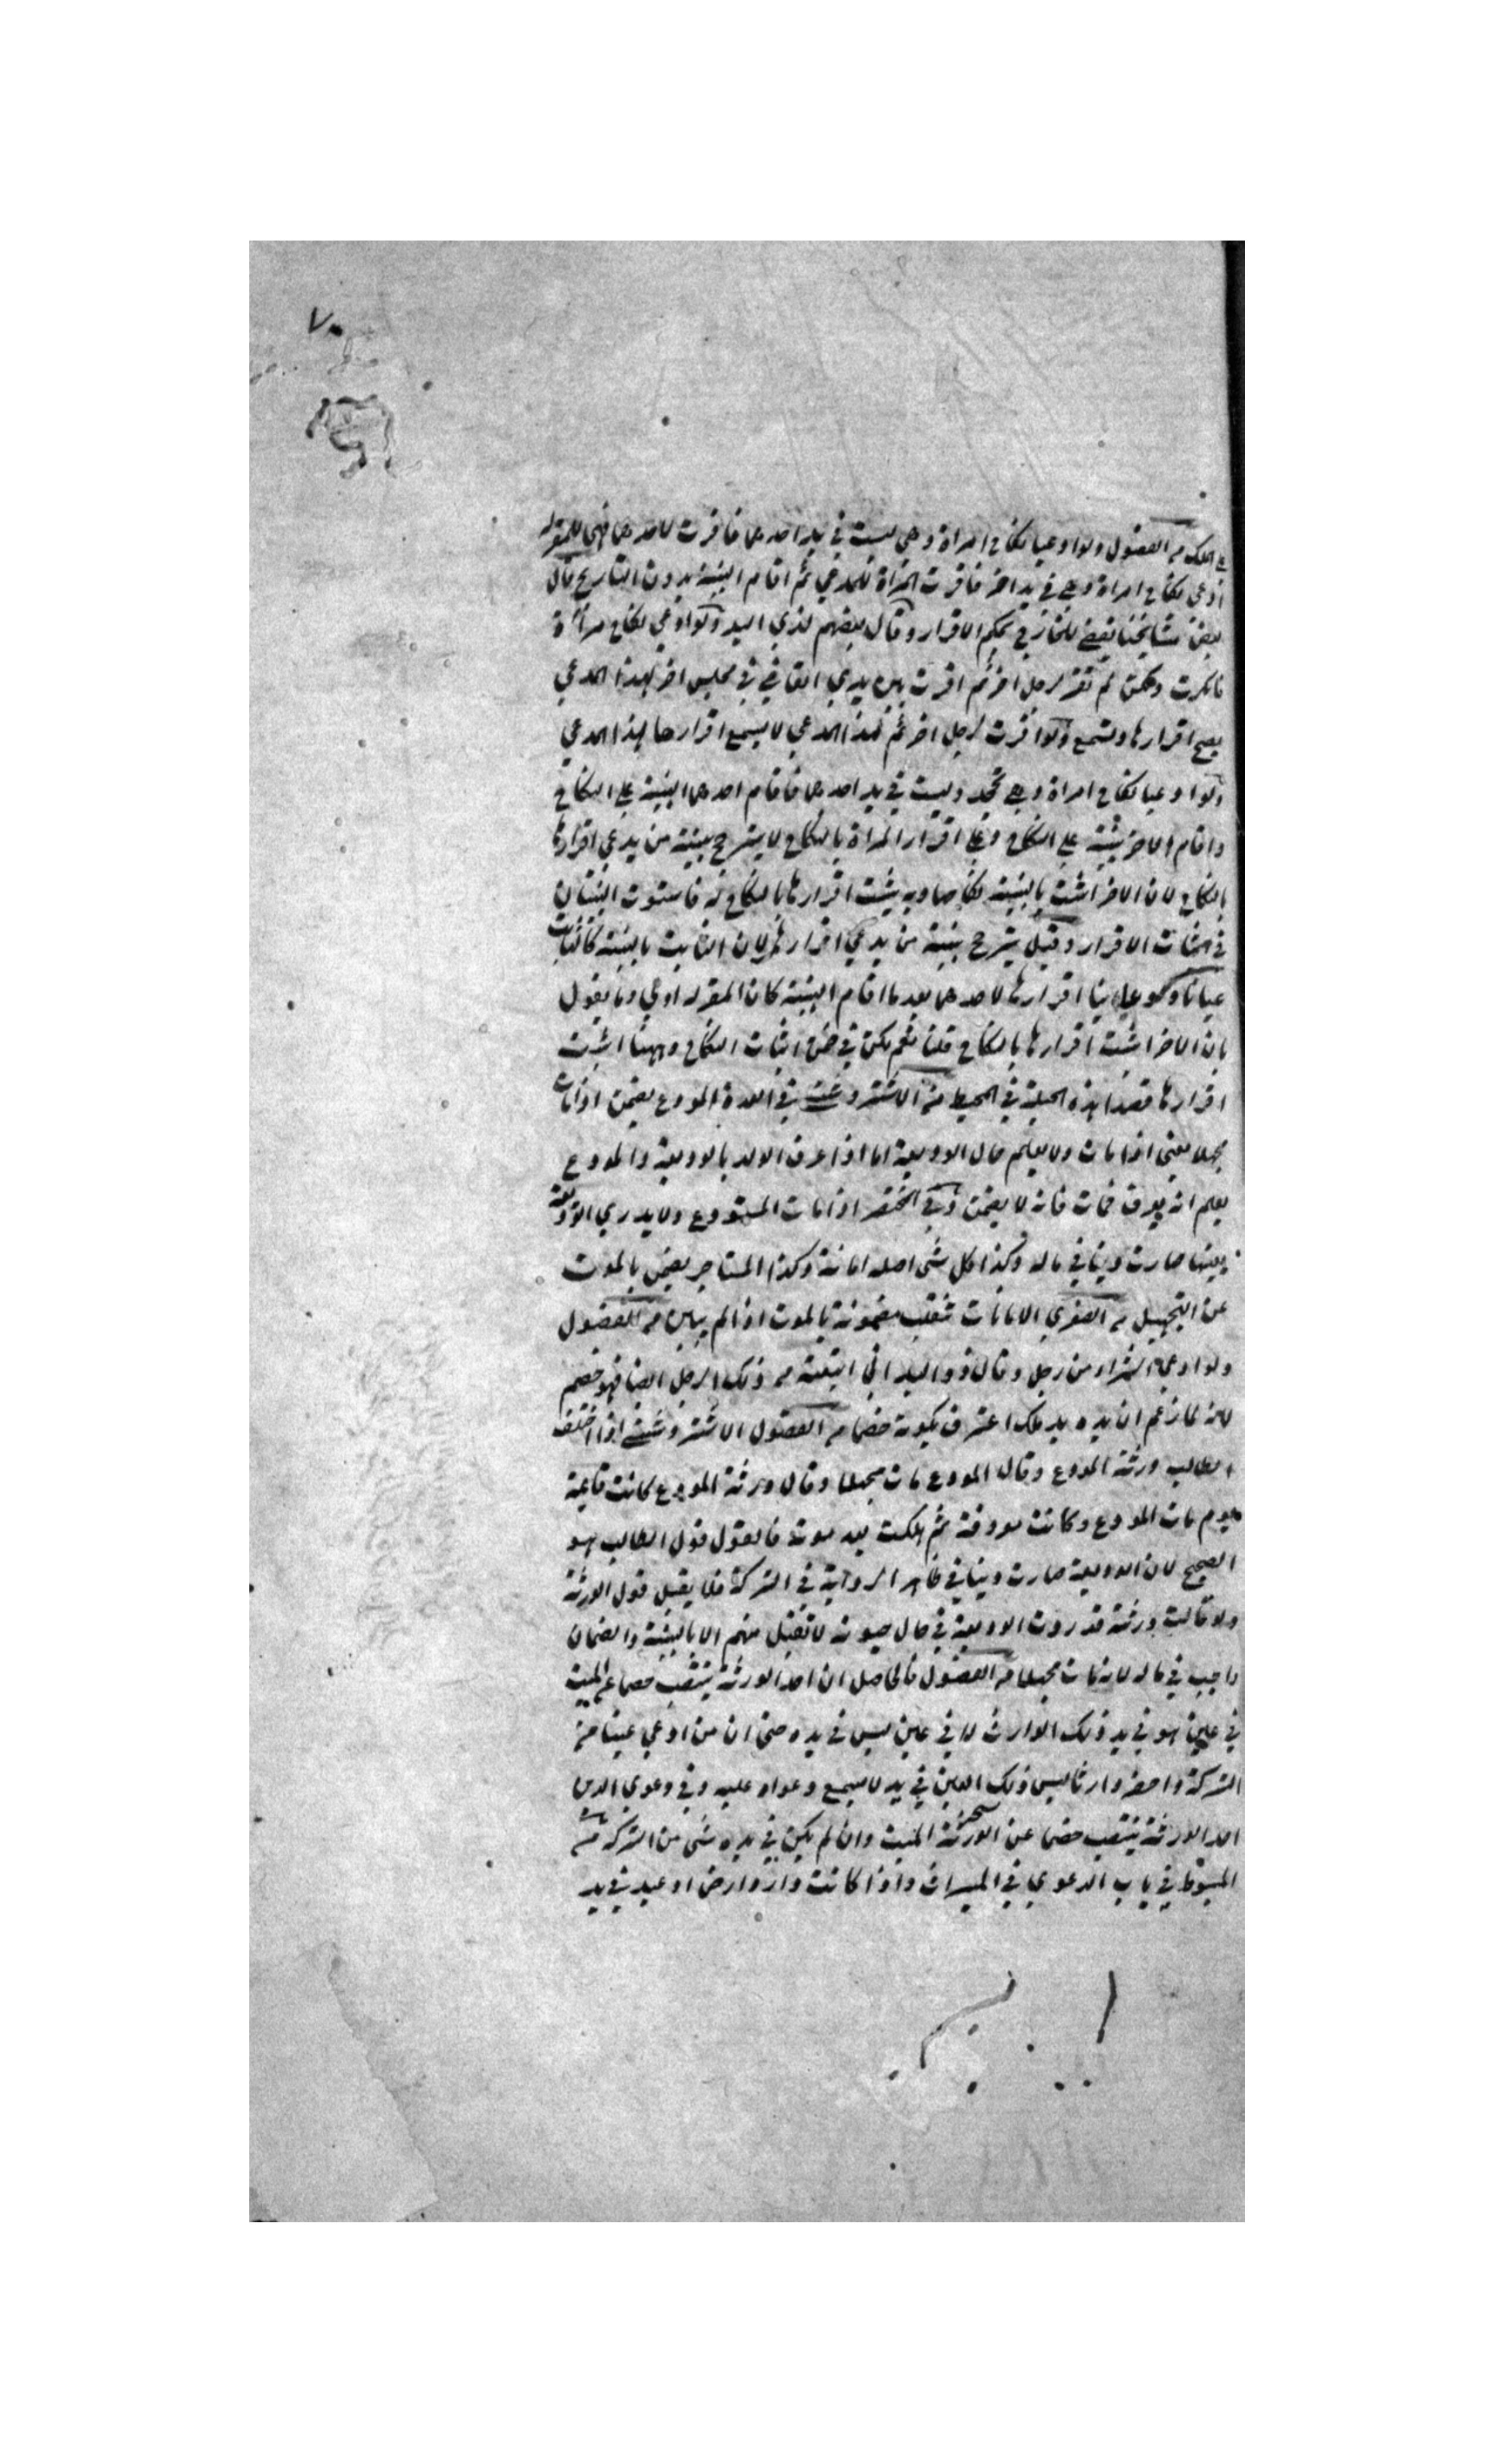 ٧٠
على الملك من الفصول ولو ادعيا نكاح امراة وهي ليست في يد احدهما فاقرت لاحدهما فهي للمقر له
ادعى نكاح امراة وهي في يد اخر فاقرت المراة للمدعي ثم اقام البينة بدون التاريخ قال
بعض مشايخنا يقضى للخارج بحكم الاقرار وقال بعضهم لذي اليد ولو ادعي نكاح امراة
فانكرت ولكن لم تقر لرجل اخر ثم اقرت بين يدي القاضي في مجلس اخر لهذا المدعي
يصح اقرارها وتسمع ولو اقرت لرجل اخر ثم لهذا المدعي لا يسمع اقرارها لهذا المدعي
ولو ادعيا نكاح امراة وهي تجحد وليست في يد احدهما فاقام احدهما البينة على النكاح
واقام الاخر بينة على النكاح وعلى اقرار المراة بالنكاح لا يترجح بينة من يدعي اقرارها
بالنكاح لان الاخر اثبت بالبينة نكاحها وبه يثبت اقرارها بالنكاح له فاستوت البينتان
في اثبات الاقرار وقيل يترجح بينة من يدعي اقرارها لان الثابت بالبينة كالثابت
عيانا ولو عاينا اقرارها لاحدهما بعد ما اقام البينة كان المقر له اولى وما يقول
بان الاخر اثبت اقرارها بالنكاح قلنا نعم لكن في ضمن اثبات النكاح وههنا اثبت
اقرارها قصدا هذه الجملة في المحيط من الاشتروشني في العدة المودع يضمن اذا مات
مجهلا يعني اذا مات ولا يعلم حال الوديعة اما اذا عرف الولد بالوديعة والمودع
يعلم انه يعرف فمات فانه لا يضمن وفي المختصر اذا مات المستودع ولا يدري الوديعة
بعينها صارت دينا في ماله وكذا كل شئ اصله امانة وكذا المستاجر يضمن بالموت
عن التجهيل من الصغرى الامانات تنقلب مضمونة بالموت اذا لم يبين من الفصول
ولو ادعي الشراء من رجل وقال ذو اليد اني ابتعته من ذلك الرجل ايضا فهو خصم
لانه لما زعم ان يده يد ملك اعترف بكونه خصما من الفصول الاشتروشني اذا اختلف
الطالب ورثة المودع وقال المودع مات مجهلا وقال ورثة المودع كانت قائمة
يوم مات المودع وكانت معروفة ثم هلكت بعد موته فالقول قول الطالب هو
الصحيح لان الوديعة صارت دينا في ظاهر الرواية في التركة فلا يقبل قول الورثة
ولو قالت ورثته قد ردت الوديعة في حال حيوته لا تقبل منهم الا بالبينة والضمان
واجب في ماله لانه مات مجهلا من الفصول فالحاصل ان احد الورثة ينتصب خصما عن الميت
في عين هو في يد ذلك الوارث لا في عين ليس في يده حتى ان من ادعي عينا من
التركة واحضر وارثا ليس ذلك العين في يده لا يسمع دعواه عليه وفي دعوي الدين
احد الورثة ينتصب خصما عن الورثة الميت وان لم يكن في يده شئ من التركة من
المبسوط في باب الدعوي في الميراث واذا كانت دار وارض او عبد في يد